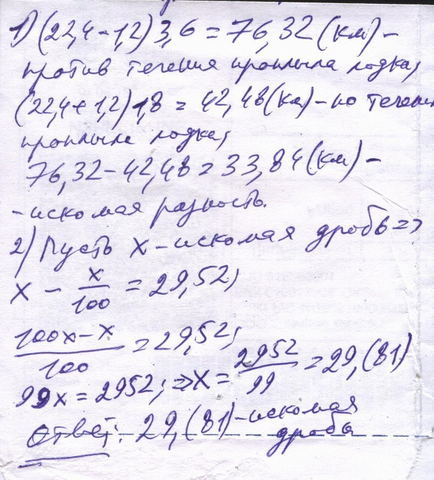 1) (22,4-1,2) 3,6 = 76,32 (км) -
против течения проплыла лодка,
(22,4+1,2) 1,8 = 42,48 (км) - по течен
проплыла лодка,
76,32 - 42,48 = 33,84 (км) -
- искомая разность.
2) Пусть x - искомая дробь =>
x - x/100 = 29,52;
(100x-x)/100 = 29,52;
99x = 2952; => x = 2952/99 = 29,(81)
Ответ: 29,(81) - искомая
дробь